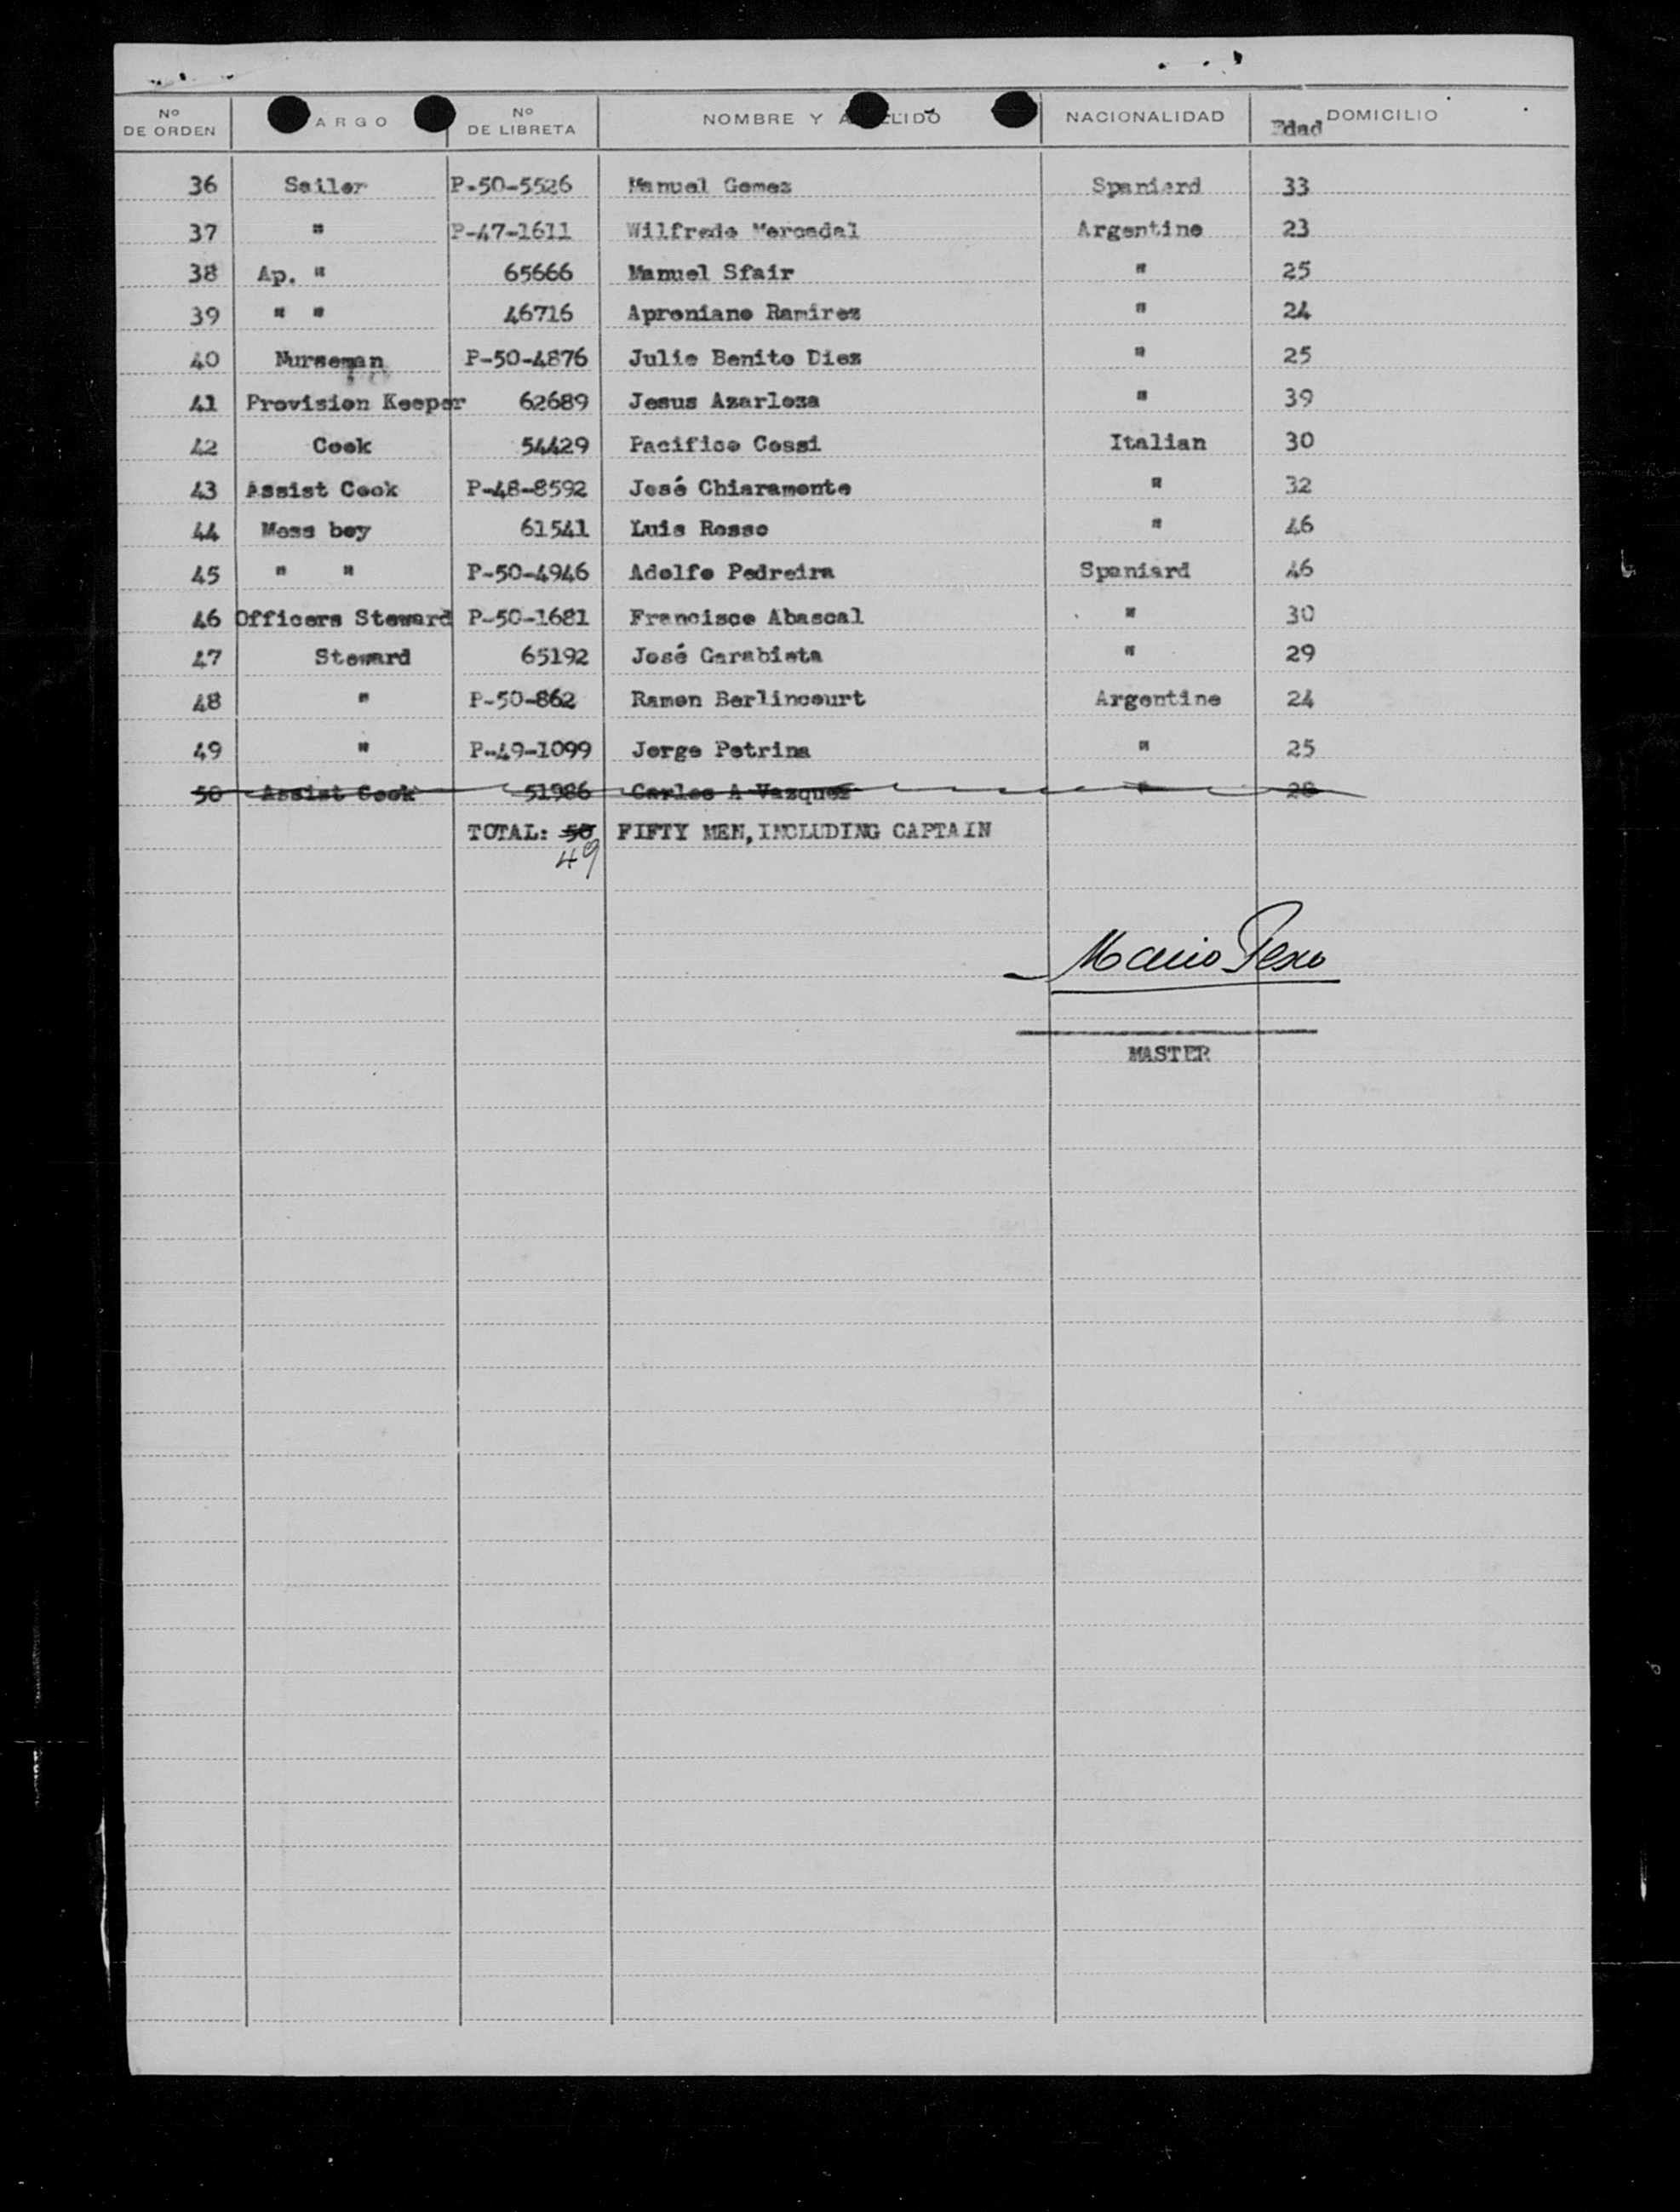 Nº DE ORDEN ARGO Nº DE LIBRETA NOMBRE Y A LIDO NACIONALIDAD Edad DOMICILIO
36 Sailor P-50-5526 Manuel Gomez Spaniard 33
37 " P-47-1611 Wilfredo Mercadal Argentine 23
38 Ap. " 65666 Manuel Sfair " 25
39 " " 46716 Aproniano Ramirez " 24
40 Nurseman P-50-4876 Julio Benito Diez " 25
41 Provision Keeper 62689 Jesus Azarloza " 39
42 Cook 54429 Pacifico Cossi Italian 30
43 Assist Cook P-48-8592 José Chiaramonte " 32
44 Mess boy 61541 Luis Rosso " 46
45 " " P-50-4946 Adolfo Pedreira Spaniard 46
46 Officers Steward P-50-1681 Francisco Abascal " 30
47 Steward 65192 José Garabieta " 29
48 " P-50-862 Ramon Berlincourt Argentine 24
49 " P-49-1099 Jorge Petrina " 25
50 Assist Cook 51986 Carlos A Vazquez " 28
TOTAL: 50 FIFTY MEN, INCLUDING CAPTAIN
49
MASTER